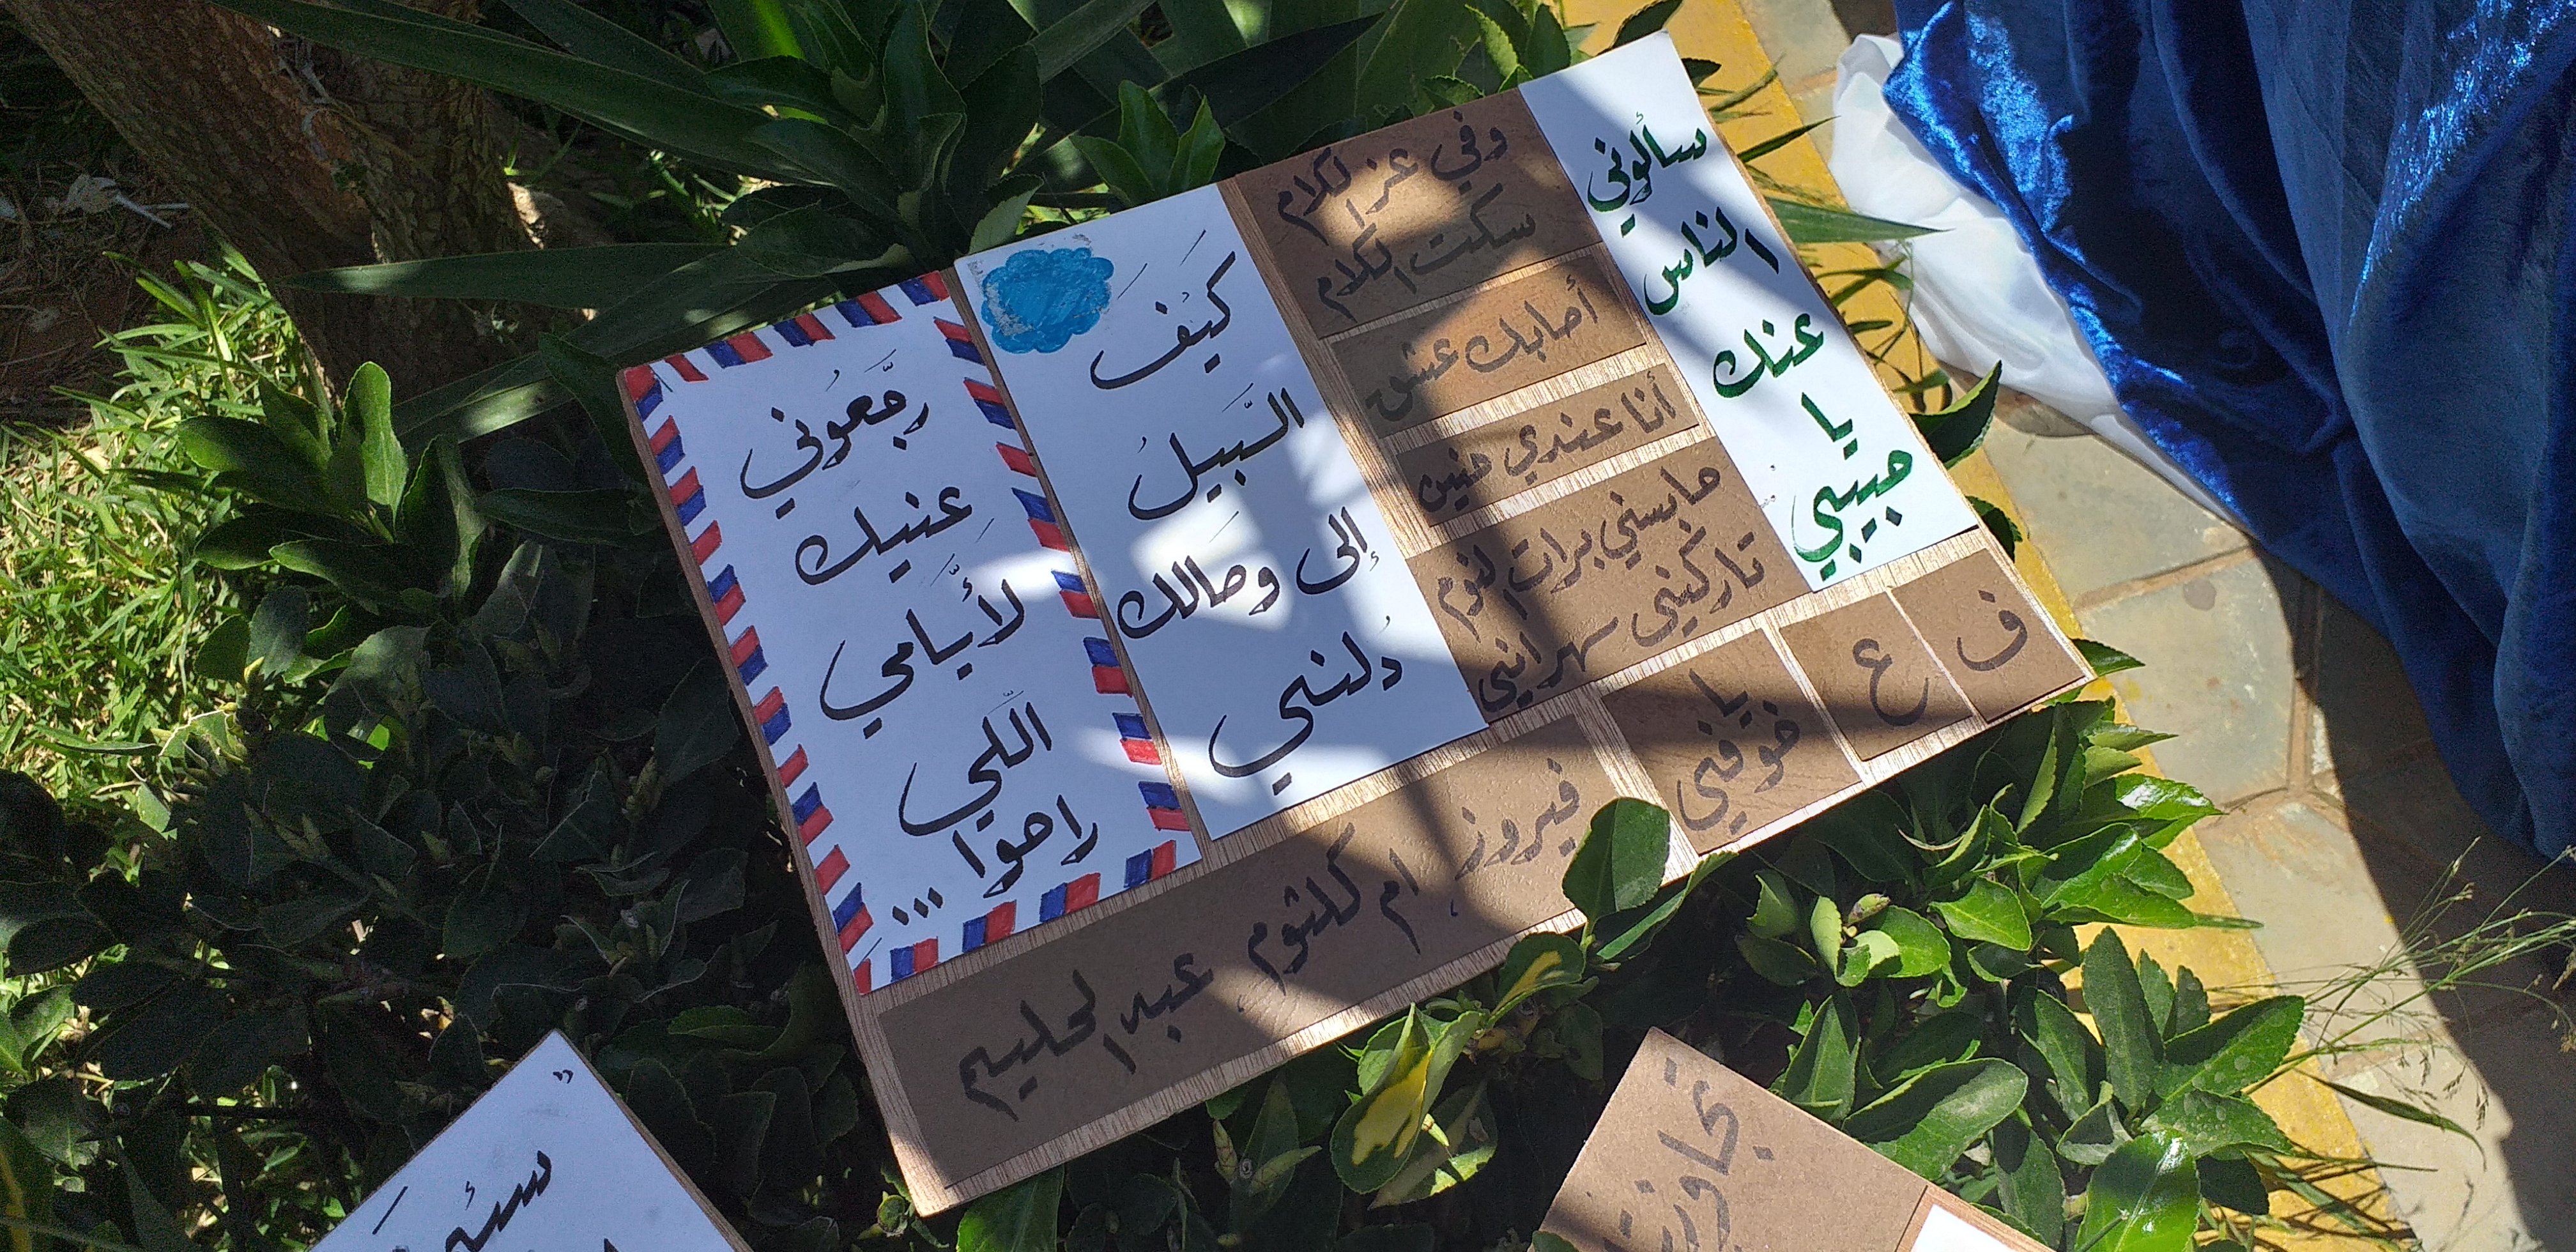 سألوني
الناس
عنك
يا
حبيبي
وفي عز الكلام
سكت الكلام
أصابك عشق
أنا عندي حنين
حابسني برات النوم
تاركيني سهراني
ف
ع
يا
خوفي
كَيْفَ
السَّبيلُ
إلى وصَالك
دُلني
رجَّعُوني
عنيك
لأيَّامي
اللّي
راحوا ...
فيروز، ام كلثوم، عبدالحليم
تجاوزت